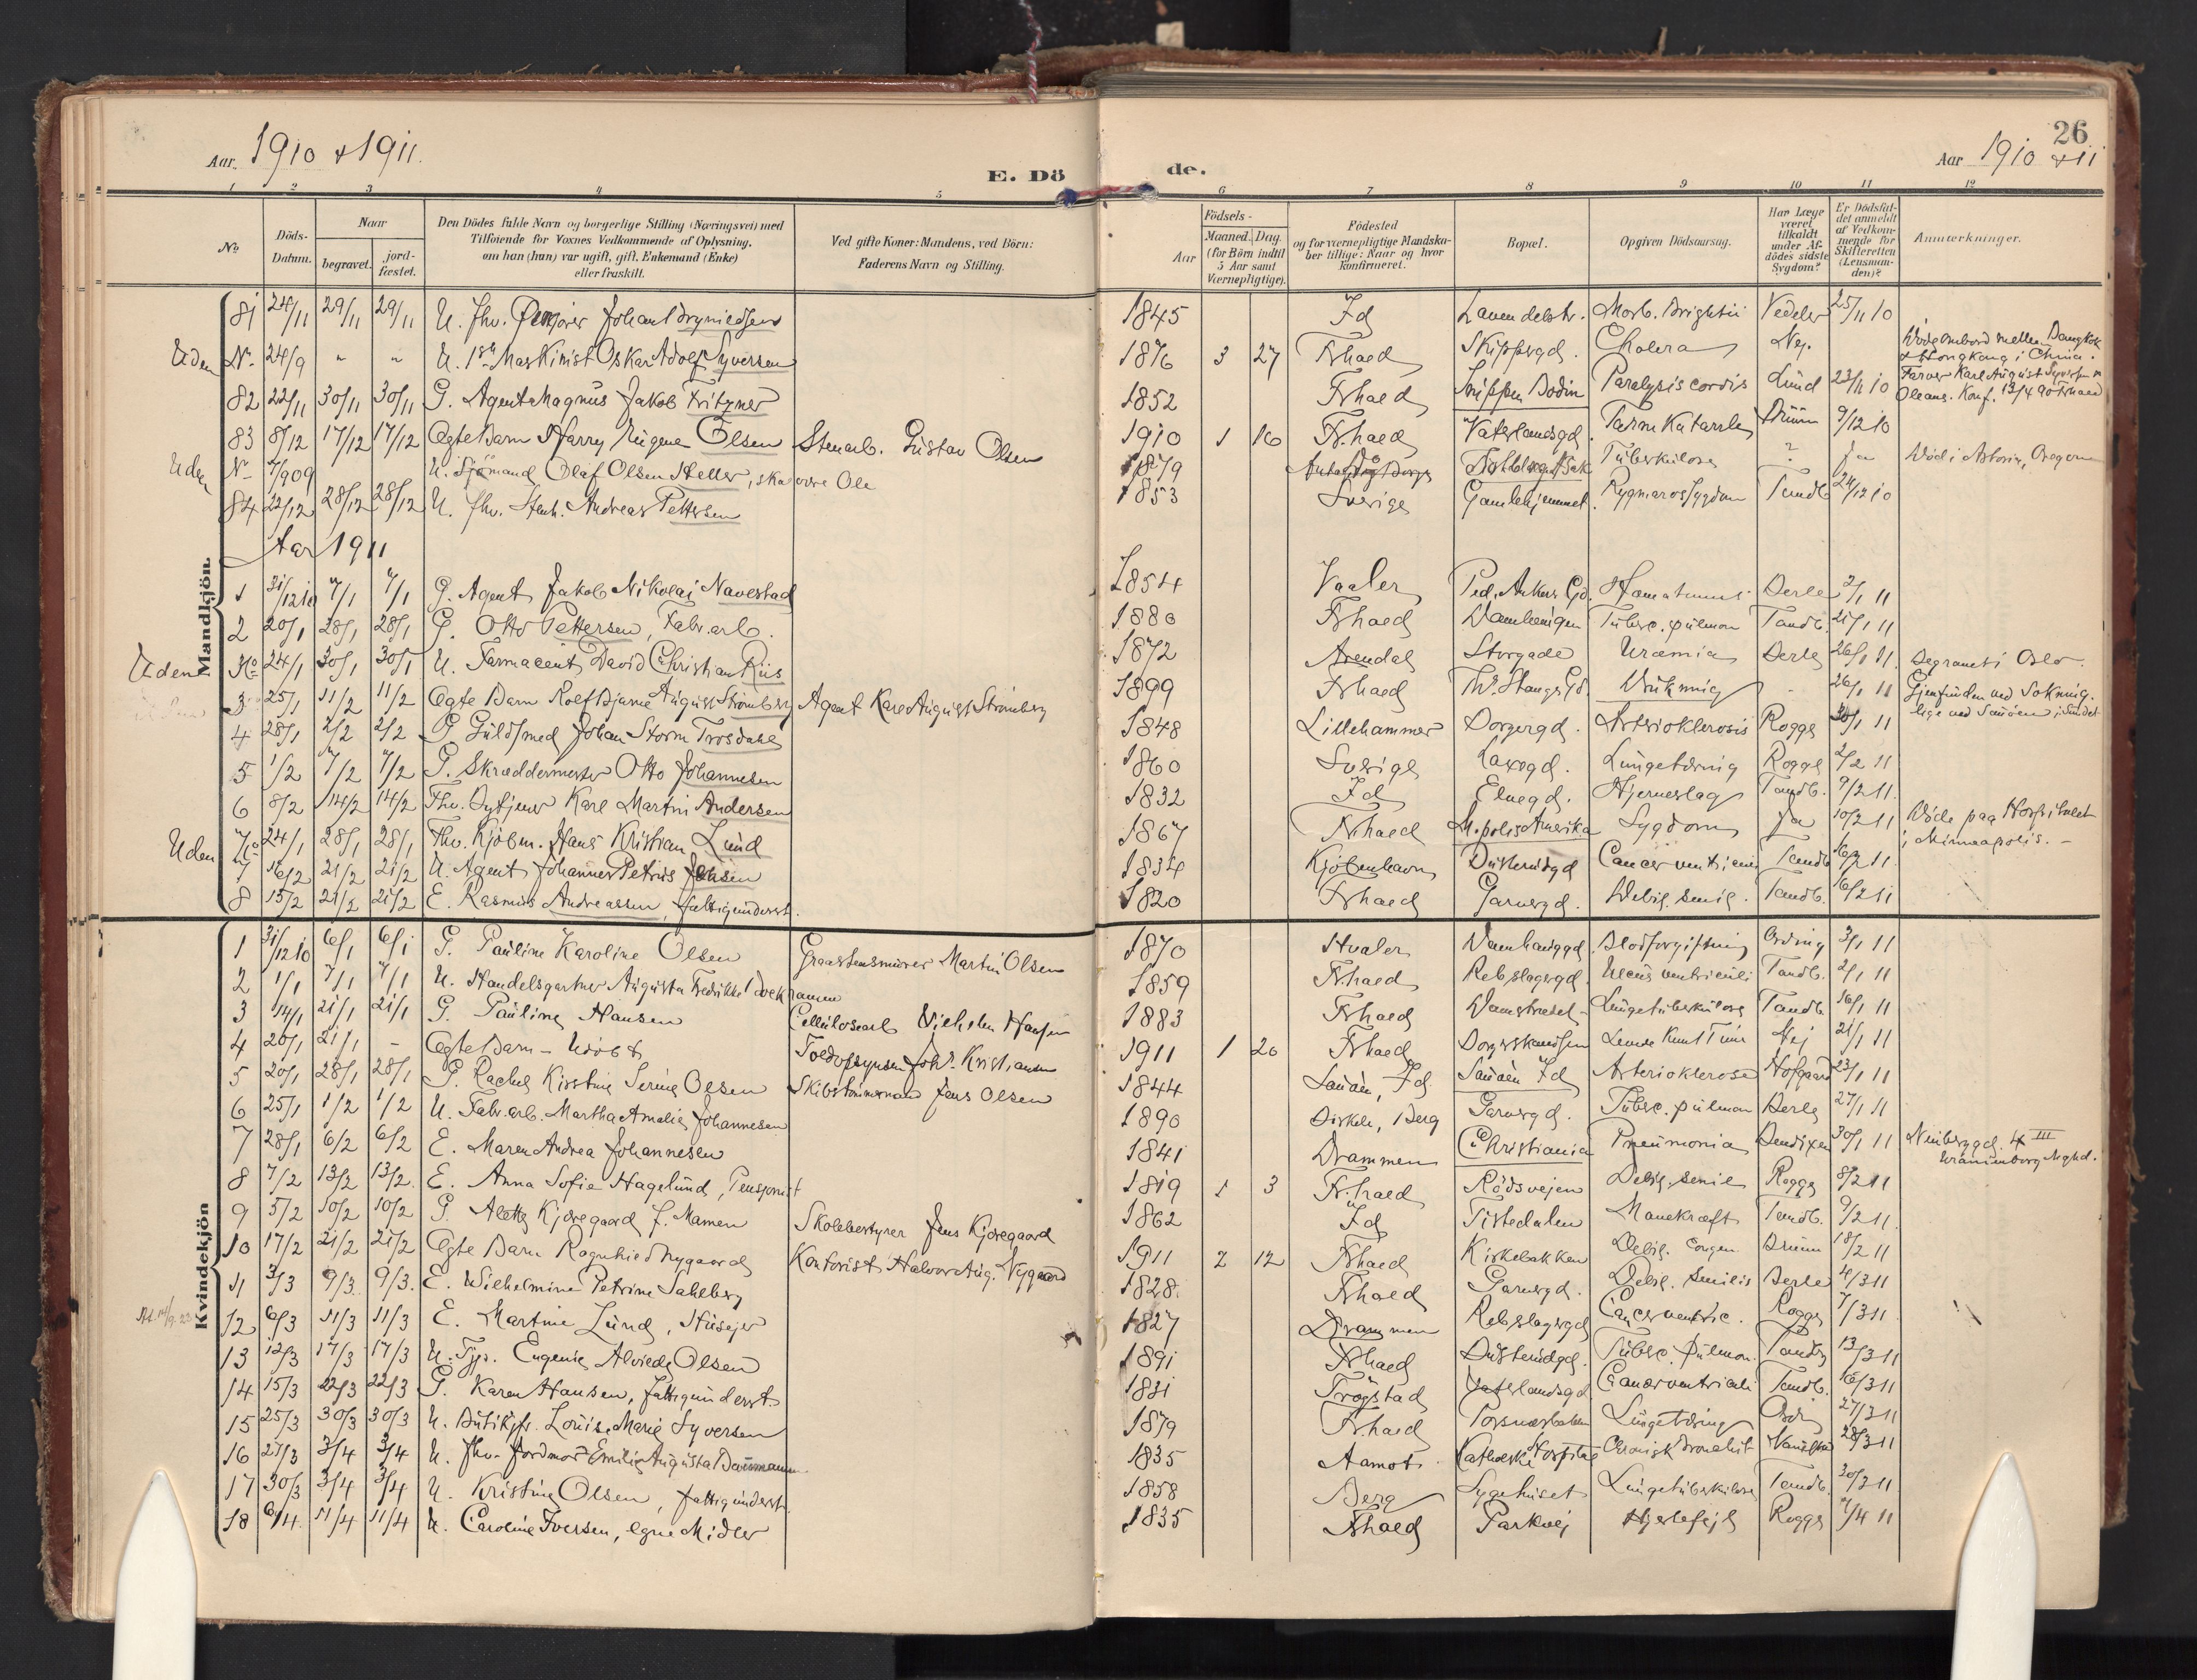 26
Aar 1910 & 1911.
E. Dö
de.
Aar 1910 & 11
1 2 3 4 5 6 7 8 9 10 11 12
No
Döds-
Datum.
Naar
begravet.
jord-
fæstet.
Den Dödes fulde Navn og borgerlige Stilling (Næringsvei) med
Tilföiende for Voxnes Vedkommende af Oplysning,
om han (hun) var ugift, gift, Enkemand (Enke)
eller fraskilt.
Ved gifte Koner: Mandens, ved Börn:
Faderens Navn og Stilling.
Födsels-
Aar
Maaned. Dag.
(for Börn indtil
5 Aar samt
Værnepligtige).
Födested
og for værnepligtige Mandska-
ber tillige: Naar og hvor
konfirmeret.
Bopæl.
Opgiven Dödsaarsag.
Har Læge
været
tilkaldt
under Af-
dödes sidste
Sygdom?
Er Dödsfal-
det anmeldt
af Vedkom-
mende for
Skifteretten
(Lensman-
den)?
Anmærkninger.
Mandkjön.
81 24/11 29/11 29/11 U. fhv. Johan 1845 Id Lavendelstr. Morb. Brightii Vedeler 25/11 10
Uden No 24/9 " " U. 1ste Maskinist Oskar Adolf Syversen 1876 3 27 Frhald Skippergd. Cholera Nej. Döde ombord mellem Bangkok
& Hongkong i China.
Farver Karl August Syversen
Konf. 13/4 90 Frhald
82 22/11 30/11 30/11 G. Agent Magnus Jakob Fritzner 1852 Frhald Bodin Paralysis cordis Lund 23/11 10
83 8/12 17/12 17/12 Ægte Barn Harry Eugene Olsen Stenarb. Gustav Olsen 1910 1 16 Fr.hald Vaterlandsgd. Tarmkatarrh 9/12 10
Uden No 7/9 09 U. Sjömand Olaf Olsen Heller, ska være Ole 1879 Tuberkulose ? Ja Död i Astoria, Oregon
84 22/12 28/12 28/12 U. fhv. Stenh. Andreas Pettersen 1853 Sverige Gamlehjemmet Rygmarvssygdom Tandb. 24/12 10
Aar 1911
1 31/12 10 7/1 7/1 G. Agent Jakob Nikolai Navestad 1854 Vaaler Ped. Ankers Gd. Derle 2/1 11
2 20/1 28/1 28/1 G. Otto Pettersen, Fabr.arb. 1880 Frhald Damhaugen Tuberc. pulmon Tandb. 21/1 11
Uden No 24/1 30/1 30/1 U. Farmaceut David Christian Riis 1872 Arendal Storgade Uræmia Derle 26/1 11 Begravet i Oslo.
3 25/1 11/2 11/2 Ægte Barn Rolf Bjarne August Strömberg Agent Karl August Strömberg 1899 Frhald Th. Stangs Gd. Drukning - 26/1 11 Gjenfunden ved Sokning
lige ved Sauöen i Sundet
4 28/1 2/2 2/2 G. Guldsmed Johan Storm Trosdahl 1848 Lillehammer Borgergd. Arteriosklerosis Rogge 30/1 11
5 1/2 7/2 7/2 G. Skræddermester Otto Johannesen 1860 Sverige Laxegd. Lungetæring Rogge 2/2 11
6 8/2 14/2 14/2 Fhv. Bytjener Karl Martin Andersen 1832 Id Elvegd. Hjerneslag Tandb. 9/2 11.
Uden No 24/1 28/1 28/1 Fhv. Kjöbm. Hans Kristian Lund 1867 Fr.hald M.polis Amerika Sygdom Ja 10/2 11 Döde paa Hospitalet
i Minneapolis. -
7 16/2 21/2 21/2 U. Agent Johannes Petrus Jensen 1834 Kjöbenhavn Busterudgd Cancer ventriculi Tandb. 16/2 11.
8 15/2 21/2 21/2 E. Rasmus Andreassen, fattigunderst. 1820 Frhald Garvergd. Debil. senil. Tandb. 16/2 11
Kvindekjön
1 31/12 10 6/1 6/1 G. Pauline Karoline Olsen Graastensmurer Martin Olsen 1870 Hvaler Damhauggd Blodforgiftning Ording 3/1 11
2 1/1 7/1 7/1 U. Handelsgartner Augusta Fredrikke 1859 Fr.hald Rebslagergd. Ulcus ventriculi Tandb. 2/1 11
3 14/1 21/1 21/1 G. Pauline Hansen Cellulosearb. Vilhelm Hansen 1883 Frhald Damstredet Lungetuberkulose Tandb. 16/1 11
4 20/1 21/1 - Ægte Barn - Udöbt Toldopsynsm Joh. Kristiansen 1911 1 20 Frhald Borgerskandsen Levede kun 1 Time Nej 21/1 11
5 20/1 28/1 28/1 G. Rachel Kirstine Serine Olsen Skibstömmermand Jens Olsen 1844 Sauöen, Id. Sauöen Id Arteriosklerose Hofgaard 23/1 11
6 25/1 1/2 1/2 U. Fabr.arb. Martha Amalie Johannesen 1890 Berg Garvergd. Tuberc. pulmon Derle 27/1 11
7 28/1 6/2 6/2 E. Maren Andrea Johannesen 1841 Drammen Christiania Pneumonia Bendixen 30/1 11 4 III
Uranienborg Mghd.
8 7/2 13/2 13/2. E. Anna Sofie Hagelund, Pensjonist 1819 1 3 Fr.hald Rödsvejen Debil. senil Rogge 8/2 11
9 5/2 10/2 10/2 G. Alette Kjöregaard f. Mamen Skolebestyrer Jens Kjöregaard 1862 Id Tistedalen Tandb. 9/2 11.
10 17/2 21/2 21/2 Ægte Barn Ragnhild Nygaard Kontorist Halvor Aug. Nygaard 1911 2 12 Frhald Kirkebakken Debil. congen Bruun 18/2 11
11 3/3 9/3. 9/3. E. Wilhelmine Petrine Sahlberg 1828. Frhald Garvergd. Debil. senilis Derle 4/3 11
12 6/3 11/3 11/3 E. Martine Lund, Husejer 1827 Drammen Rebslagergd Cancer ventric. Rogge 7/3 11
13 12/3 17/3 17/3 U. Tjp. Eugenie Alvilde Olsen 1891 Frhald Busterudgd. Tuberc. pulmon. Tandb. 13/3 11
14 15/3 22/3 22/3 G. Karen Hansen, fattigunderst. 1831 Trögstad Vaterlandsgd Cancer ventriculi Tandb. 16/3 11
15 25/3 30/3 30/3 U. Butikjfr. Louise Marie Syversen 1879 Fr.hald Porsnæsbakken Lungetæring 27/3 11
16 27/3 3/4 3/4 U. fhv. Jordmor Emilie Augusta 1835 Aamot Katholsk Hospital Chronisk Bronchit 28/3 11
17 30/3 3/4 3/4 U. Kristine Olsen, fattigunderst. 1858 Berg Sygehuset Lungetuberkulose Tandb. 30/3 11
18 6/4 11/4 11/4 U. Caroline Iversen, egne Midler 1835 Frhald Parkvej Hjertefejl Rogge 7/4 11